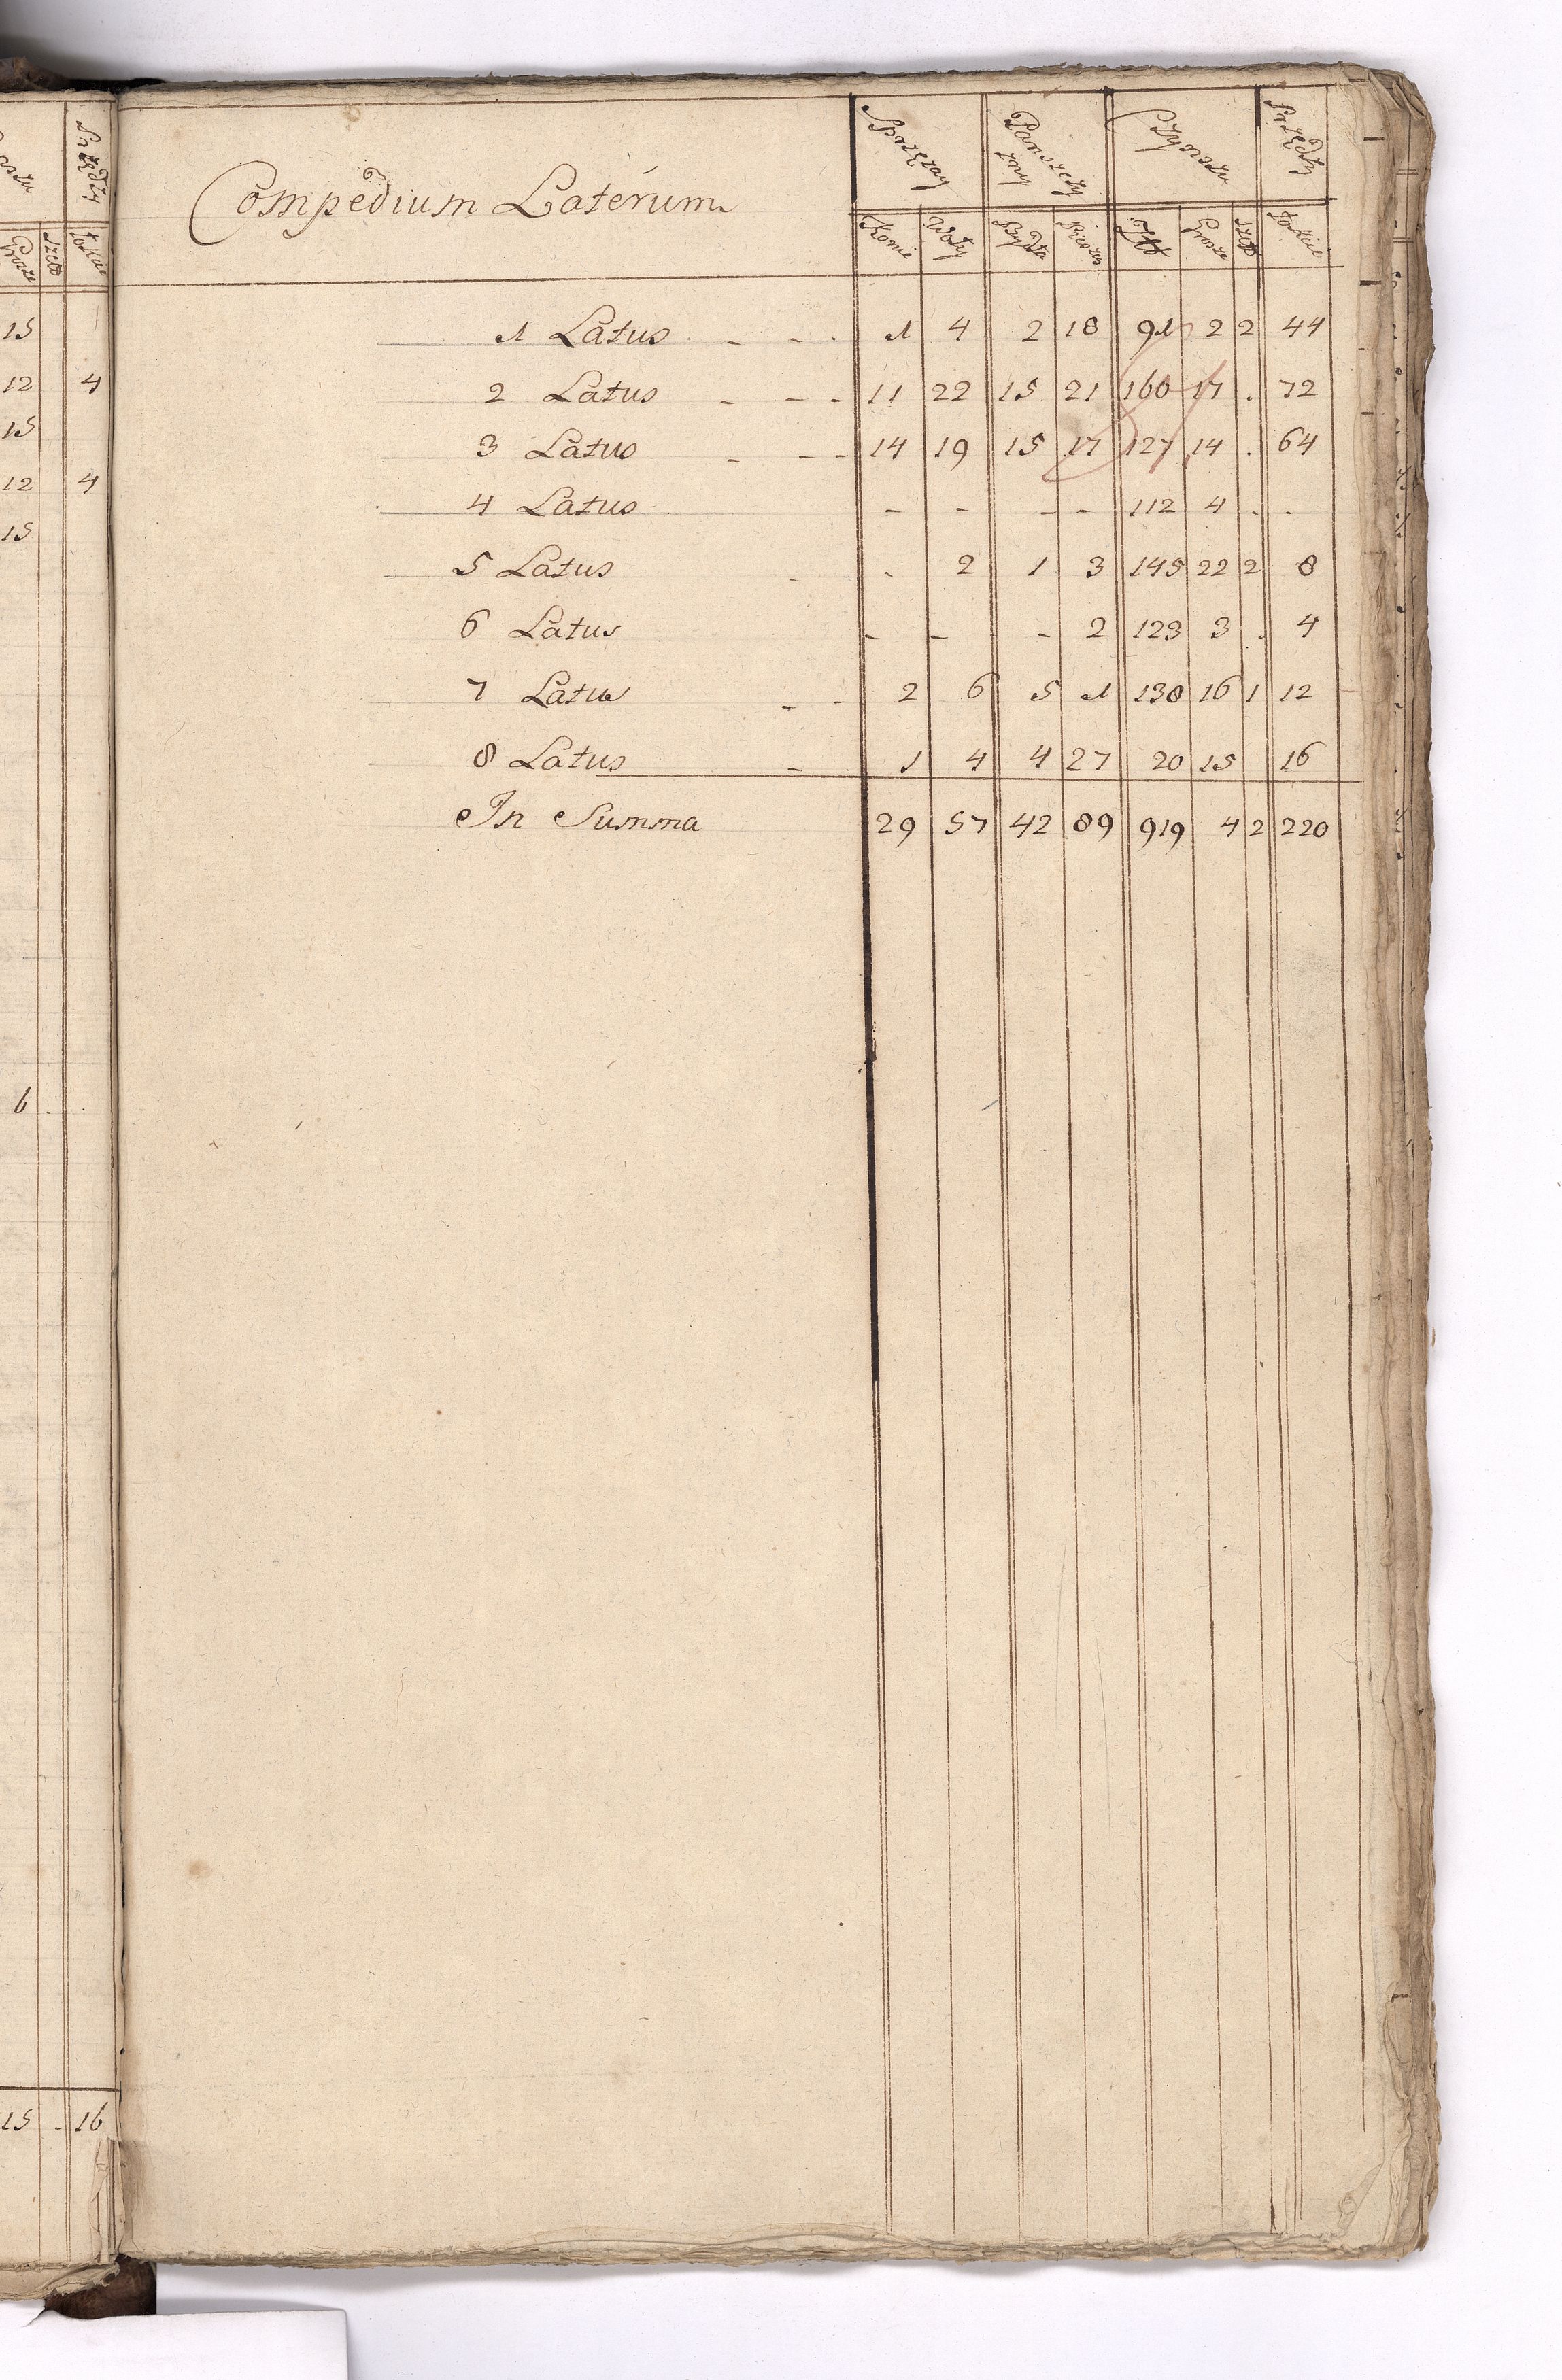 Compedium Laterum
Sprzęzay Panszczy zny Czynszu Przędzy
Konie Woły Bydła Pieszo Złł Grosze Szell Łokcie
1 Latus - - . 1 4 2 18 91 2 2 44
2 Latus - - - 11 22 15 21 160 17 . 72
3 Latus - - - 14 19 15 17 127 14 . 64
4 Latus - - - - 112 4 . .
5 Latus - . 2 1 3 145 22 2 8
6 Latus - - - 2 123 3 . 4
7 Latus - - 2 6 5 1 138 16 1 12
8 Latus - 1 4 4 27 20 15 16
In Summa 29 57 42 89 919 4 2 220
Przędzy
Grosze Szell Łokcie
15
12 4
15
12 4
15
6 . .
15 - 16